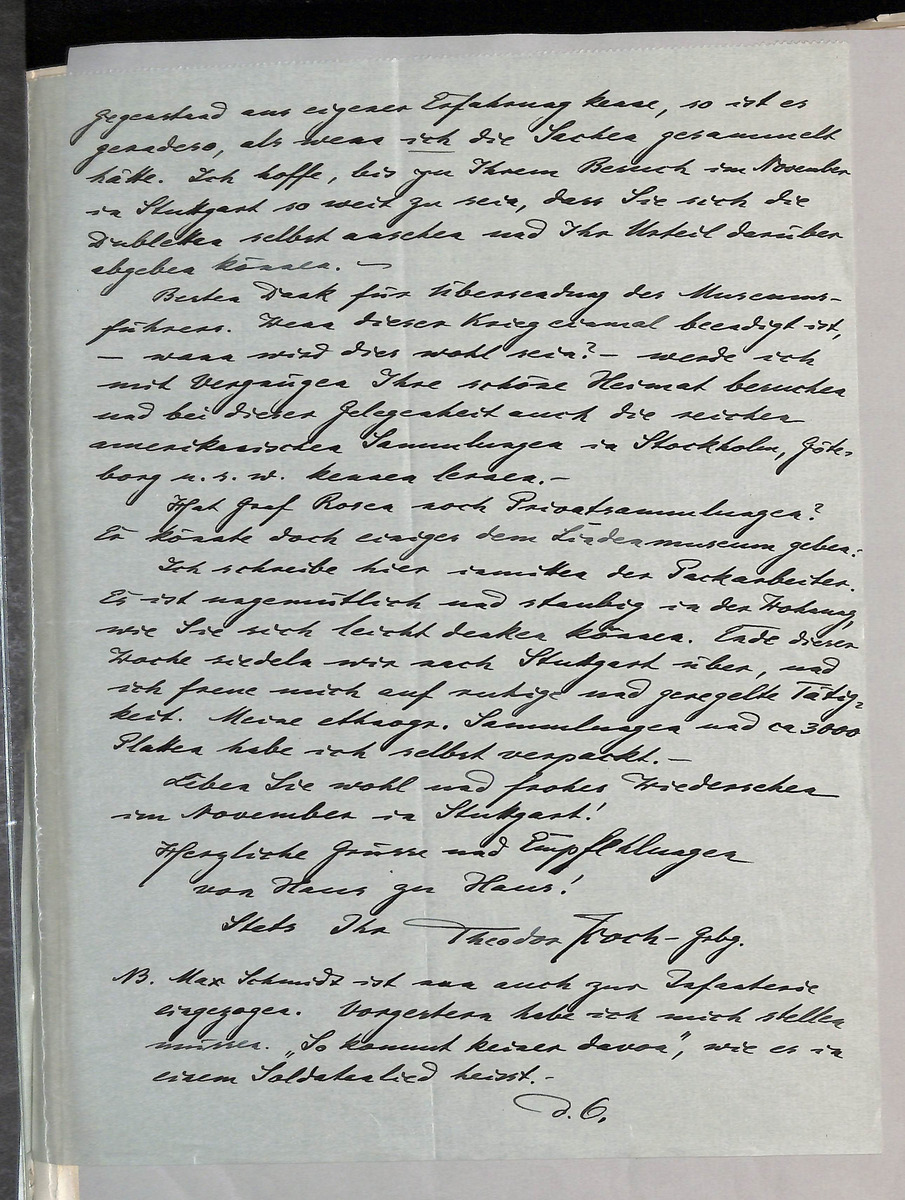 Gegenstand aus eigener Erfahrung kenne, so ist es
geradeso, als wenn ich die Sachen gesammelt
hätte. Ich hoffe, bis zu Ihrem Besuch im November
in Stuttgart so weit zu sein, dass Sie sich die
Dubletten selbst ansehen und Ihr Urteil darüber
abgeben können. –
Besten Dank für Übersendung des Museums-
führers. Wenn dieser Krieg einmal beendigt ist,
– wann wird dies wohl sein? – werde ich
mit Vergnügen Ihre schöne Heimat besuchen
und bei dieser Gelegenheit auch die reichen
amerikanischen Sammlungen in Stockholm, Göte-
borg u. s. w. kennen lernen. –
Hat Graf Rosen noch Privatsammlungen?
Er könnte doch einiges dem Lindenmuseum geben.
Ich schreibe hier inmitten der Packarbeiter.
Es ist ungemütlich und staubig in der Wohnung,
wie Sie sich leicht denken können. Ende dieser
Woche siedeln wir nach Stuttgart über, und
ich freue mich auf ruhige und geregelte Tätig-
keit. Meine ethnogr. Sammlungen und ca 3000
Platten habe ich selbst verpackt. –
Leben Sie wohl und frohes Wiedersehen
im November in Stuttgart!
Herzliche Grüsse und Empfehlungen
von Haus zu Haus!
Stets Ihr Theodor Koch-Grbg.
NB. Max Schmidt ist nun auch zur Infanterie
eingezogen. Vorgestern habe ich mich stellen
müssen. „So kommt keiner davon", wie es in
einem Soldatenlied heisst. –
D. O.